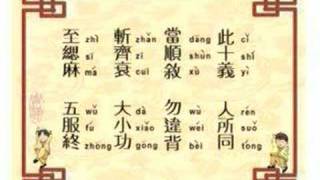 此 cǐ 十 shí 義 yì 人 rén 所 suǒ 同 tóng
當 dāng 順 shùn 敘 xù 勿 wù 違 wéi 背 bèi
斬 zhǎn 齊 zī 衰 cuī 大 dà 小 xiǎo 功 gōng
至 zhì 緦 sī 麻 má 五 wǔ 服 fú 終 zhōng